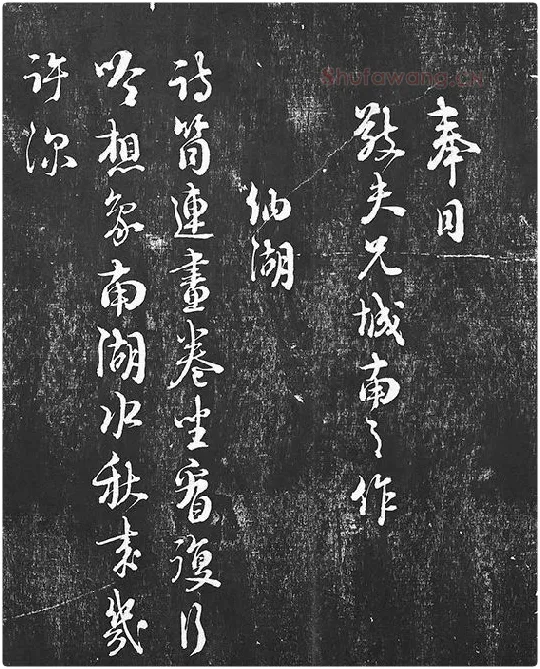 奉同
敬夫兄城南之作
纳湖
詩筒連畫卷坐看復行
吟想象南湖水秋来幾
許深
shufawang.cn